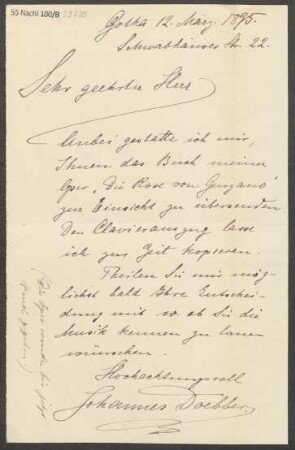 55 Nachl 100/B
Gotha 12. März. 1895.
Schwabhäuser Str. 22.
Sehr geehrter Herr
Anbei gestatte ich mir,
Ihnen das Buch meiner
Oper „Die Rose von Genzano"
zur Einsicht zu übersenden
Den Clavierauszug lasse
ich zur Zeit kopieren.
Theilen Sie mir mög-
lichst bald Ihre Entschei-
dung mit u. ob Sie die
Musik kennen zu lernen
wünschen.
Hochachtungsvoll
Johannes Doebber.
(Die Oper wurde bis jetzt